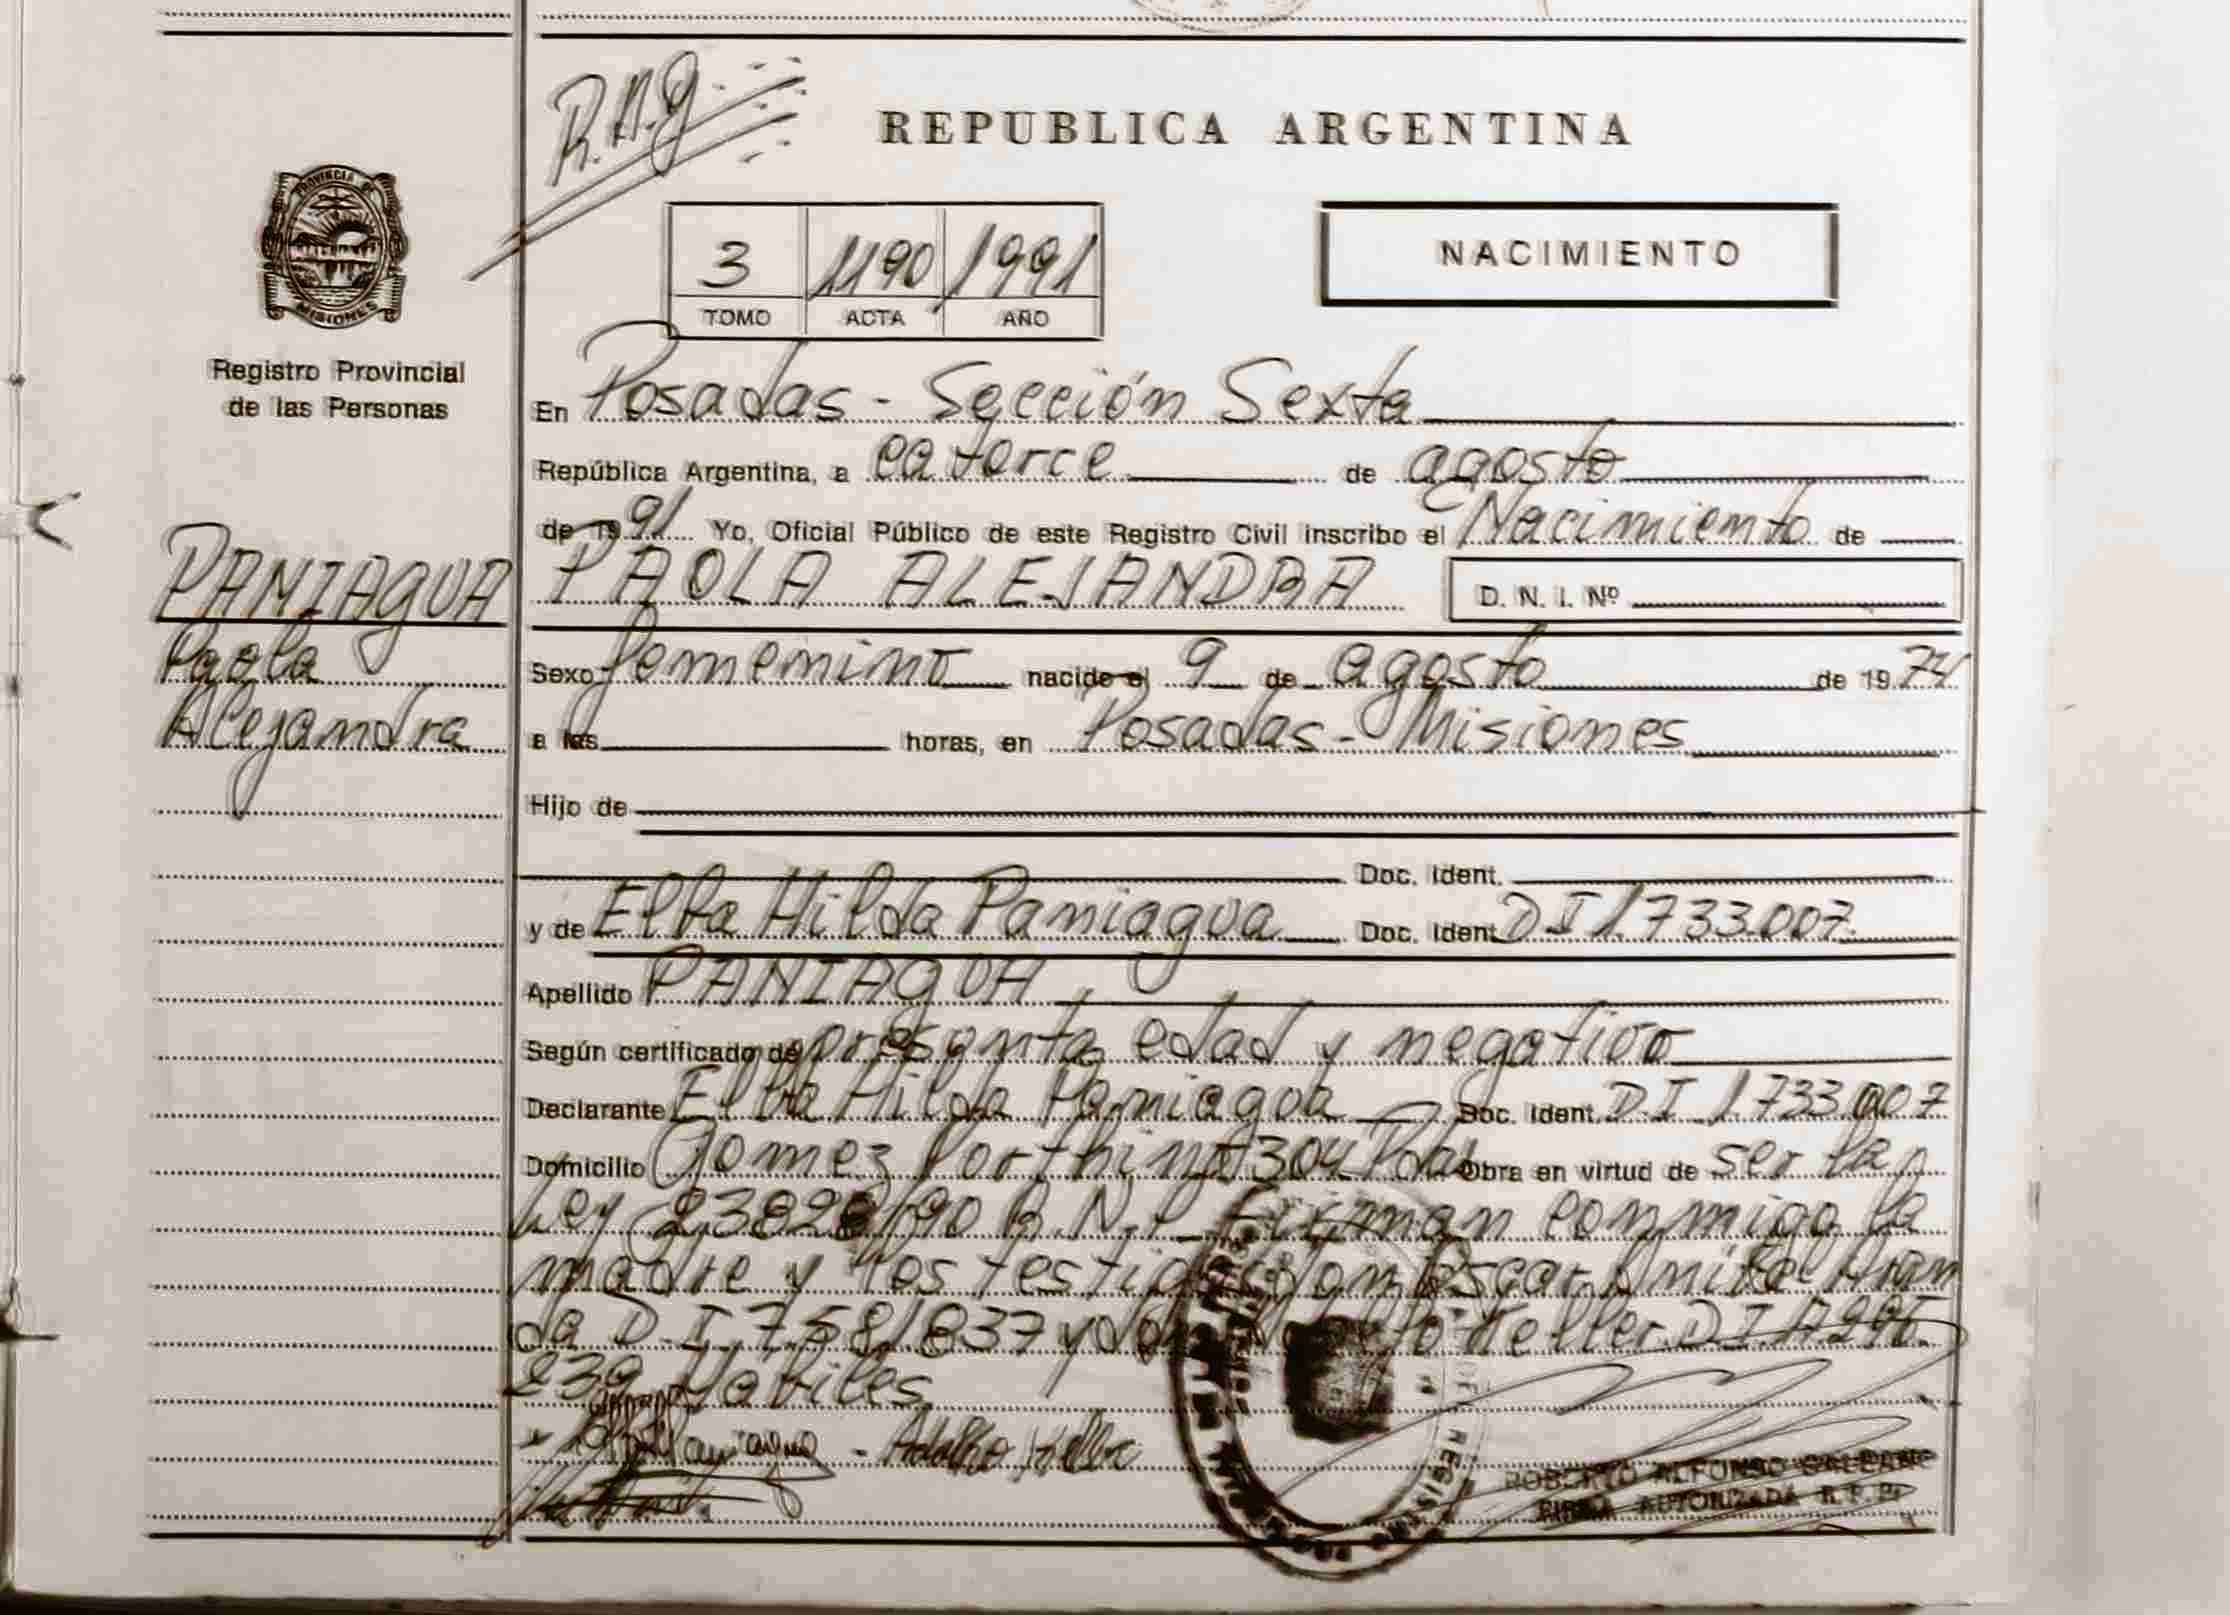 R.A.g
REPUBLICA ARGENTINA
PROVINCIA DE
MISIONES
3 1190 1991
TOMO ACTA AÑO
NACIMIENTO
Registro Provincial
de las Personas
En Posadas - Sección Sexta
República Argentina, a catorce de agosto
de 1991 Yo, Oficial Público de este Registro Civil inscribo el Nacimiento de
PANIAGUA
Paola
Alejandra
PAOLA ALEJANDRA D. N. I. Nº
Sexo femenino nacido el 9 de agosto de 1974
a las horas, en Posadas - Misiones
Hijo de
Doc. Ident.
y de Elba Hilda Paniagua Doc. Ident. DI 1.733.007
Apellido PANIAGUA
Según certificado de presunta edad y negativo
Declarante Elba Hilda Paniagua Doc. Ident. DI 1.733.007
Domicilio Gomez 304 Obra en virtud de ser la
Ley 90 Firman conmigo la
madre y los testigos don Oscar
da D.I.7.581.837 y Keller DI
239 Hábiles
ROBERTO ALFONSO GALEANO
FIRMA AUTORIZADA R.P.P.